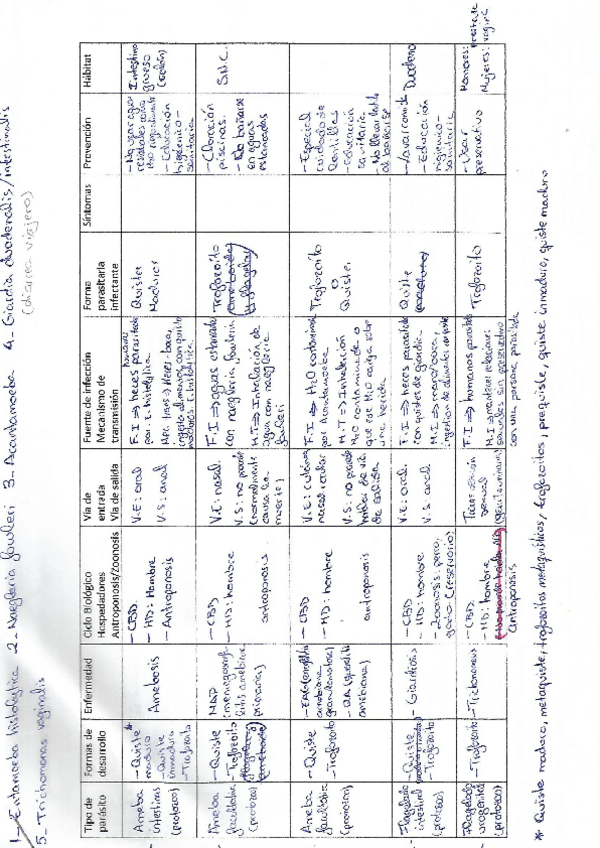 1- Entamoeba histolytica 2- Naegleria fowleri 3- Acantamoeba 4- Giardia duodenalis/intestinalis
(diarrea viajero)
5- Trichomonas vaginalis
Tipo de parásito
Formas de desarrollo
Enfermedad
Ciclo Biológico
Hospedadores
Antroponosis/Zoonosis
Vía de entrada
Vía de salida
Fuente de infección
Mecanismo de transmisión
Forma parasitaria infectante
Síntomas
Prevención
Hábitat
Ameba intestinal (protozoo)
- Quiste maduro *
- Quiste inmaduro
- Trofozoito
Amebosis
- CBD
- HD: Hombre
- Antroponosis
V.E: oral
V.S: anal
F.I => heces humanas parasitadas por E. histolytica
Quistes Maduros
- No usar aguas residuales como
- Educación higiénico-sanitaria
Intestino grueso (colon)
Ameba facultativa (protozoo)
- Quiste
- Trofozoito
MAP (meningoencefalitis amebiana primaria)
- CBD
- HD: hombre
antroponosis
V.E: nasal.
V.S: no posee (normalmente causa la muerte)
F.I => aguas estancadas con naegleria fowleri
M.T => Inhalación de agua con naegleria fowleri
Trofozoito
- Cloración piscinas.
- No bañarse en aguas estancadas
S.N.C.
Ameba facultativa (protozoo)
- Quiste
- Trofozoito
- EAG (encefalitis amebiana granulomatosa)
- QA (queratitis amebiana)
- CBD
- HD: hombre
antroponosis
V.E: cutánea, nasal, ocular
V.S: no posee
F.I => H2O contaminada por Acantamoeba
M.T => Inhalación H2O contaminada o que ese H2O caiga sobre una herida
Trofozoito o Quiste.
- Especial cuidado de lentillas
- Educación sanitaria
- No llevar lentillas al bañarse
Flagelado intestinal (protozoo)
- Quiste
- Trofozoito
- Giardiosis
- CBD.
- HD: hombre
- Zoonosis: perro, gato (reservorio)
V.E: oral.
V.S: anal.
F.I => heces parasitadas con quistes de giardia
M.I => mano-boca, ingestión de alimentos
Quiste
- Lavar
- Educación higiénico-sanitaria
Duodeno
Flagelado urogenital (protozoo)
- Trofozoito
- Tricomonosis
- CBD.
- HD: hombre
antroponosis
Transmisión sexual (genitourinaria)
F.I => humanos parasitados
M.I => mantener relaciones sexuales sin preservativo con una persona parasitada
Trofozoito
- Usar preservativo
Hombres: próstata
Mujeres: vagina
* Quiste maduro, metaquiste, trofozoitos metaquísticos, trofozoitos, prequiste, quiste inmaduro, quiste maduro